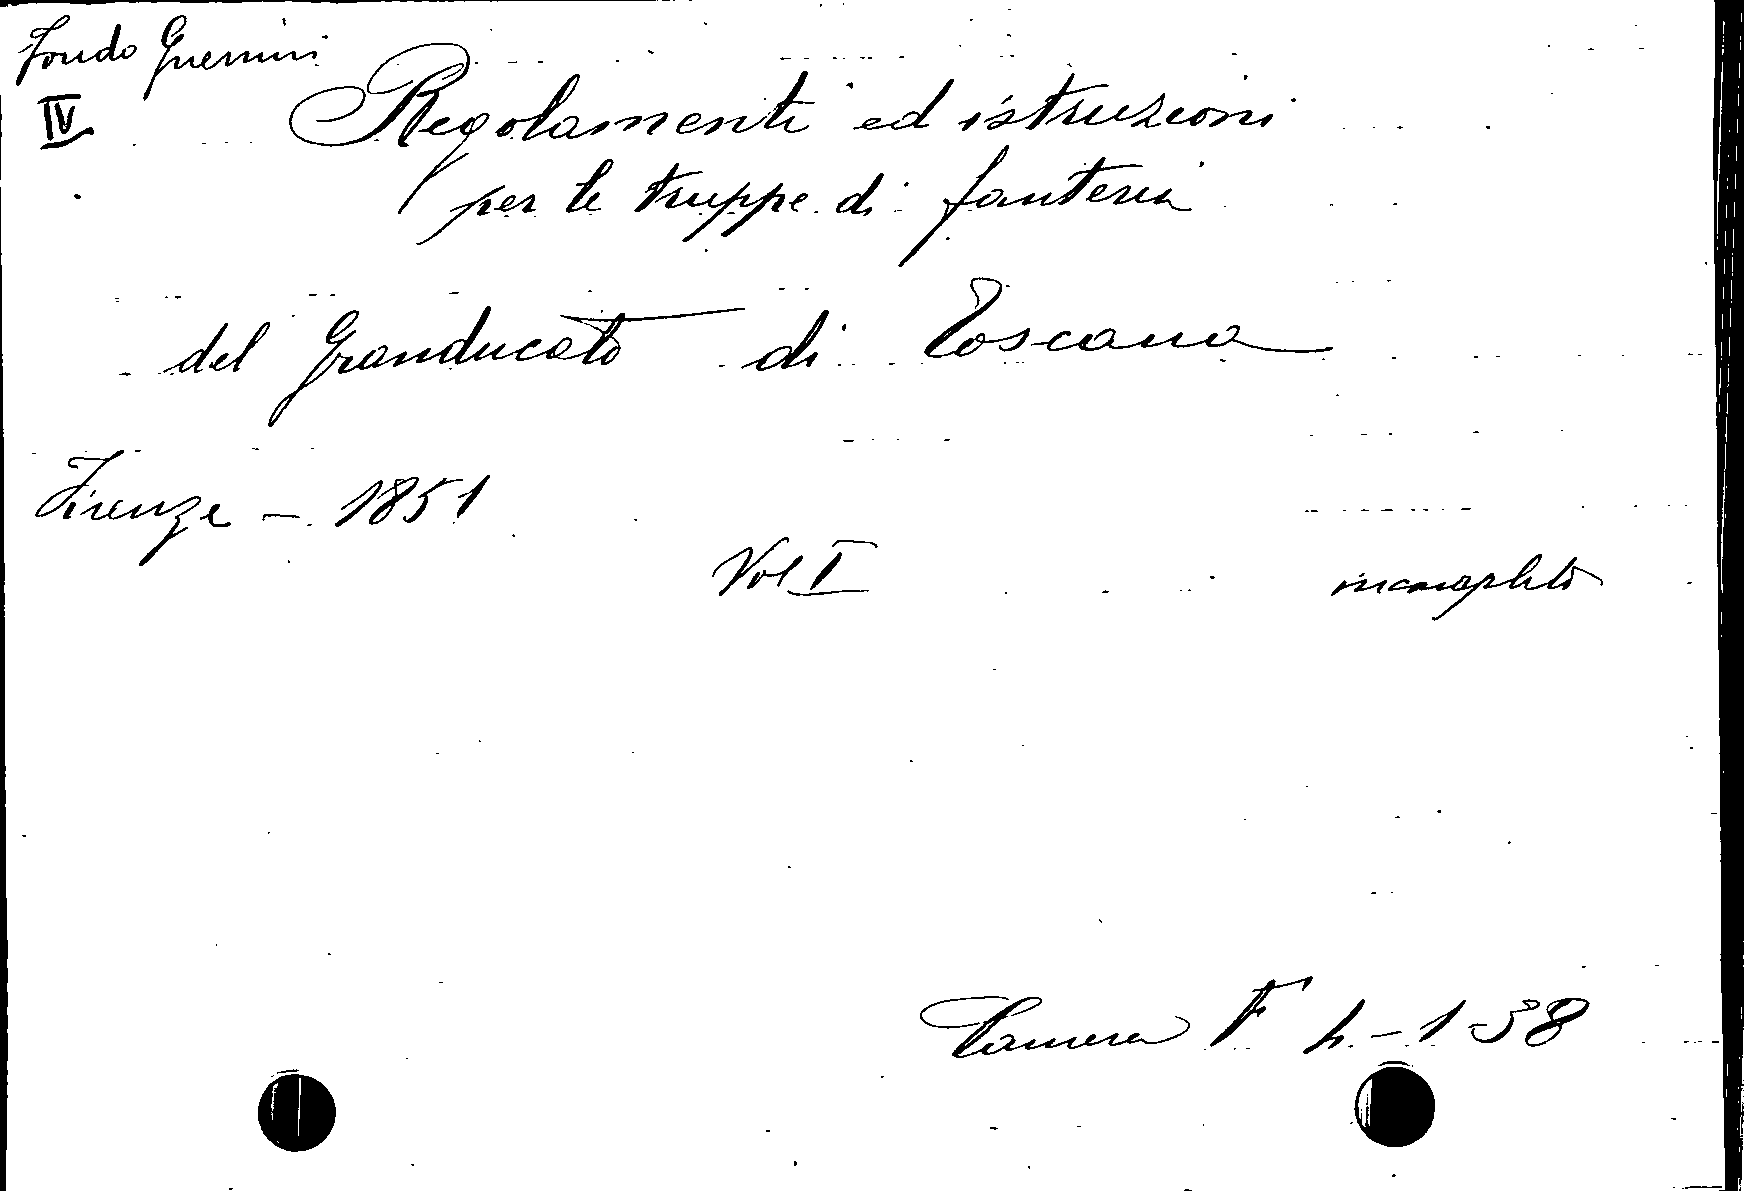 Fondo Guerrini
IV
Regolamenti ed istruzioni
per le truppe di fanteria
del Granducato di Toscana
Firenze - 1851
Vol I incompleto
Camera F h - 1 - 38